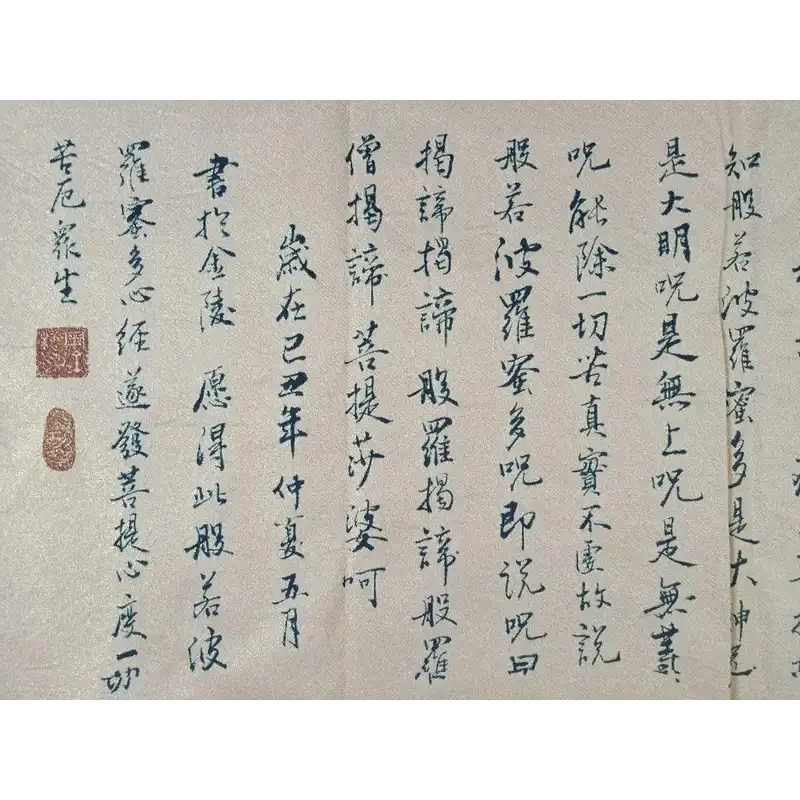 知般若波羅蜜多是大神呪
是大明呪是無上呪是無等
呪能除一切苦真實不虛故說
般若波羅蜜多呪即說呪曰
揭諦揭諦 般羅揭諦般羅
僧揭諦 菩提莎婆呵
歲在己丑年仲夏五月
書於金陵 愿得此般若波
羅蜜多心經遂發菩提心度一切
苦厄眾生